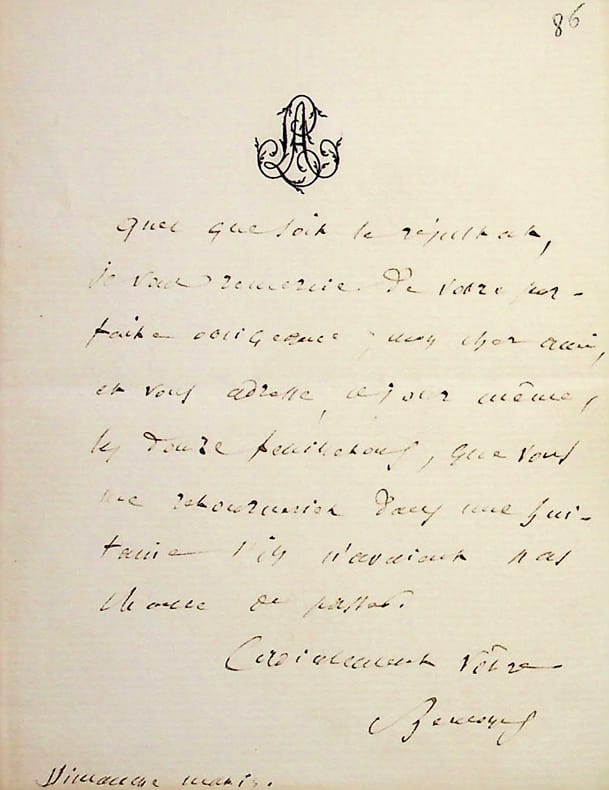 86
quel que soit le résultat,
je vous remercie de votre par-
faite obligeance, mon cher ami,
et vous adresse, ce jour même,
les douze feuilletons, que vous
me retourneriez dans une hui-
taine s'ils n'avaient pas
chance de passer.
Cordialement vôtre
Dimanche matin.